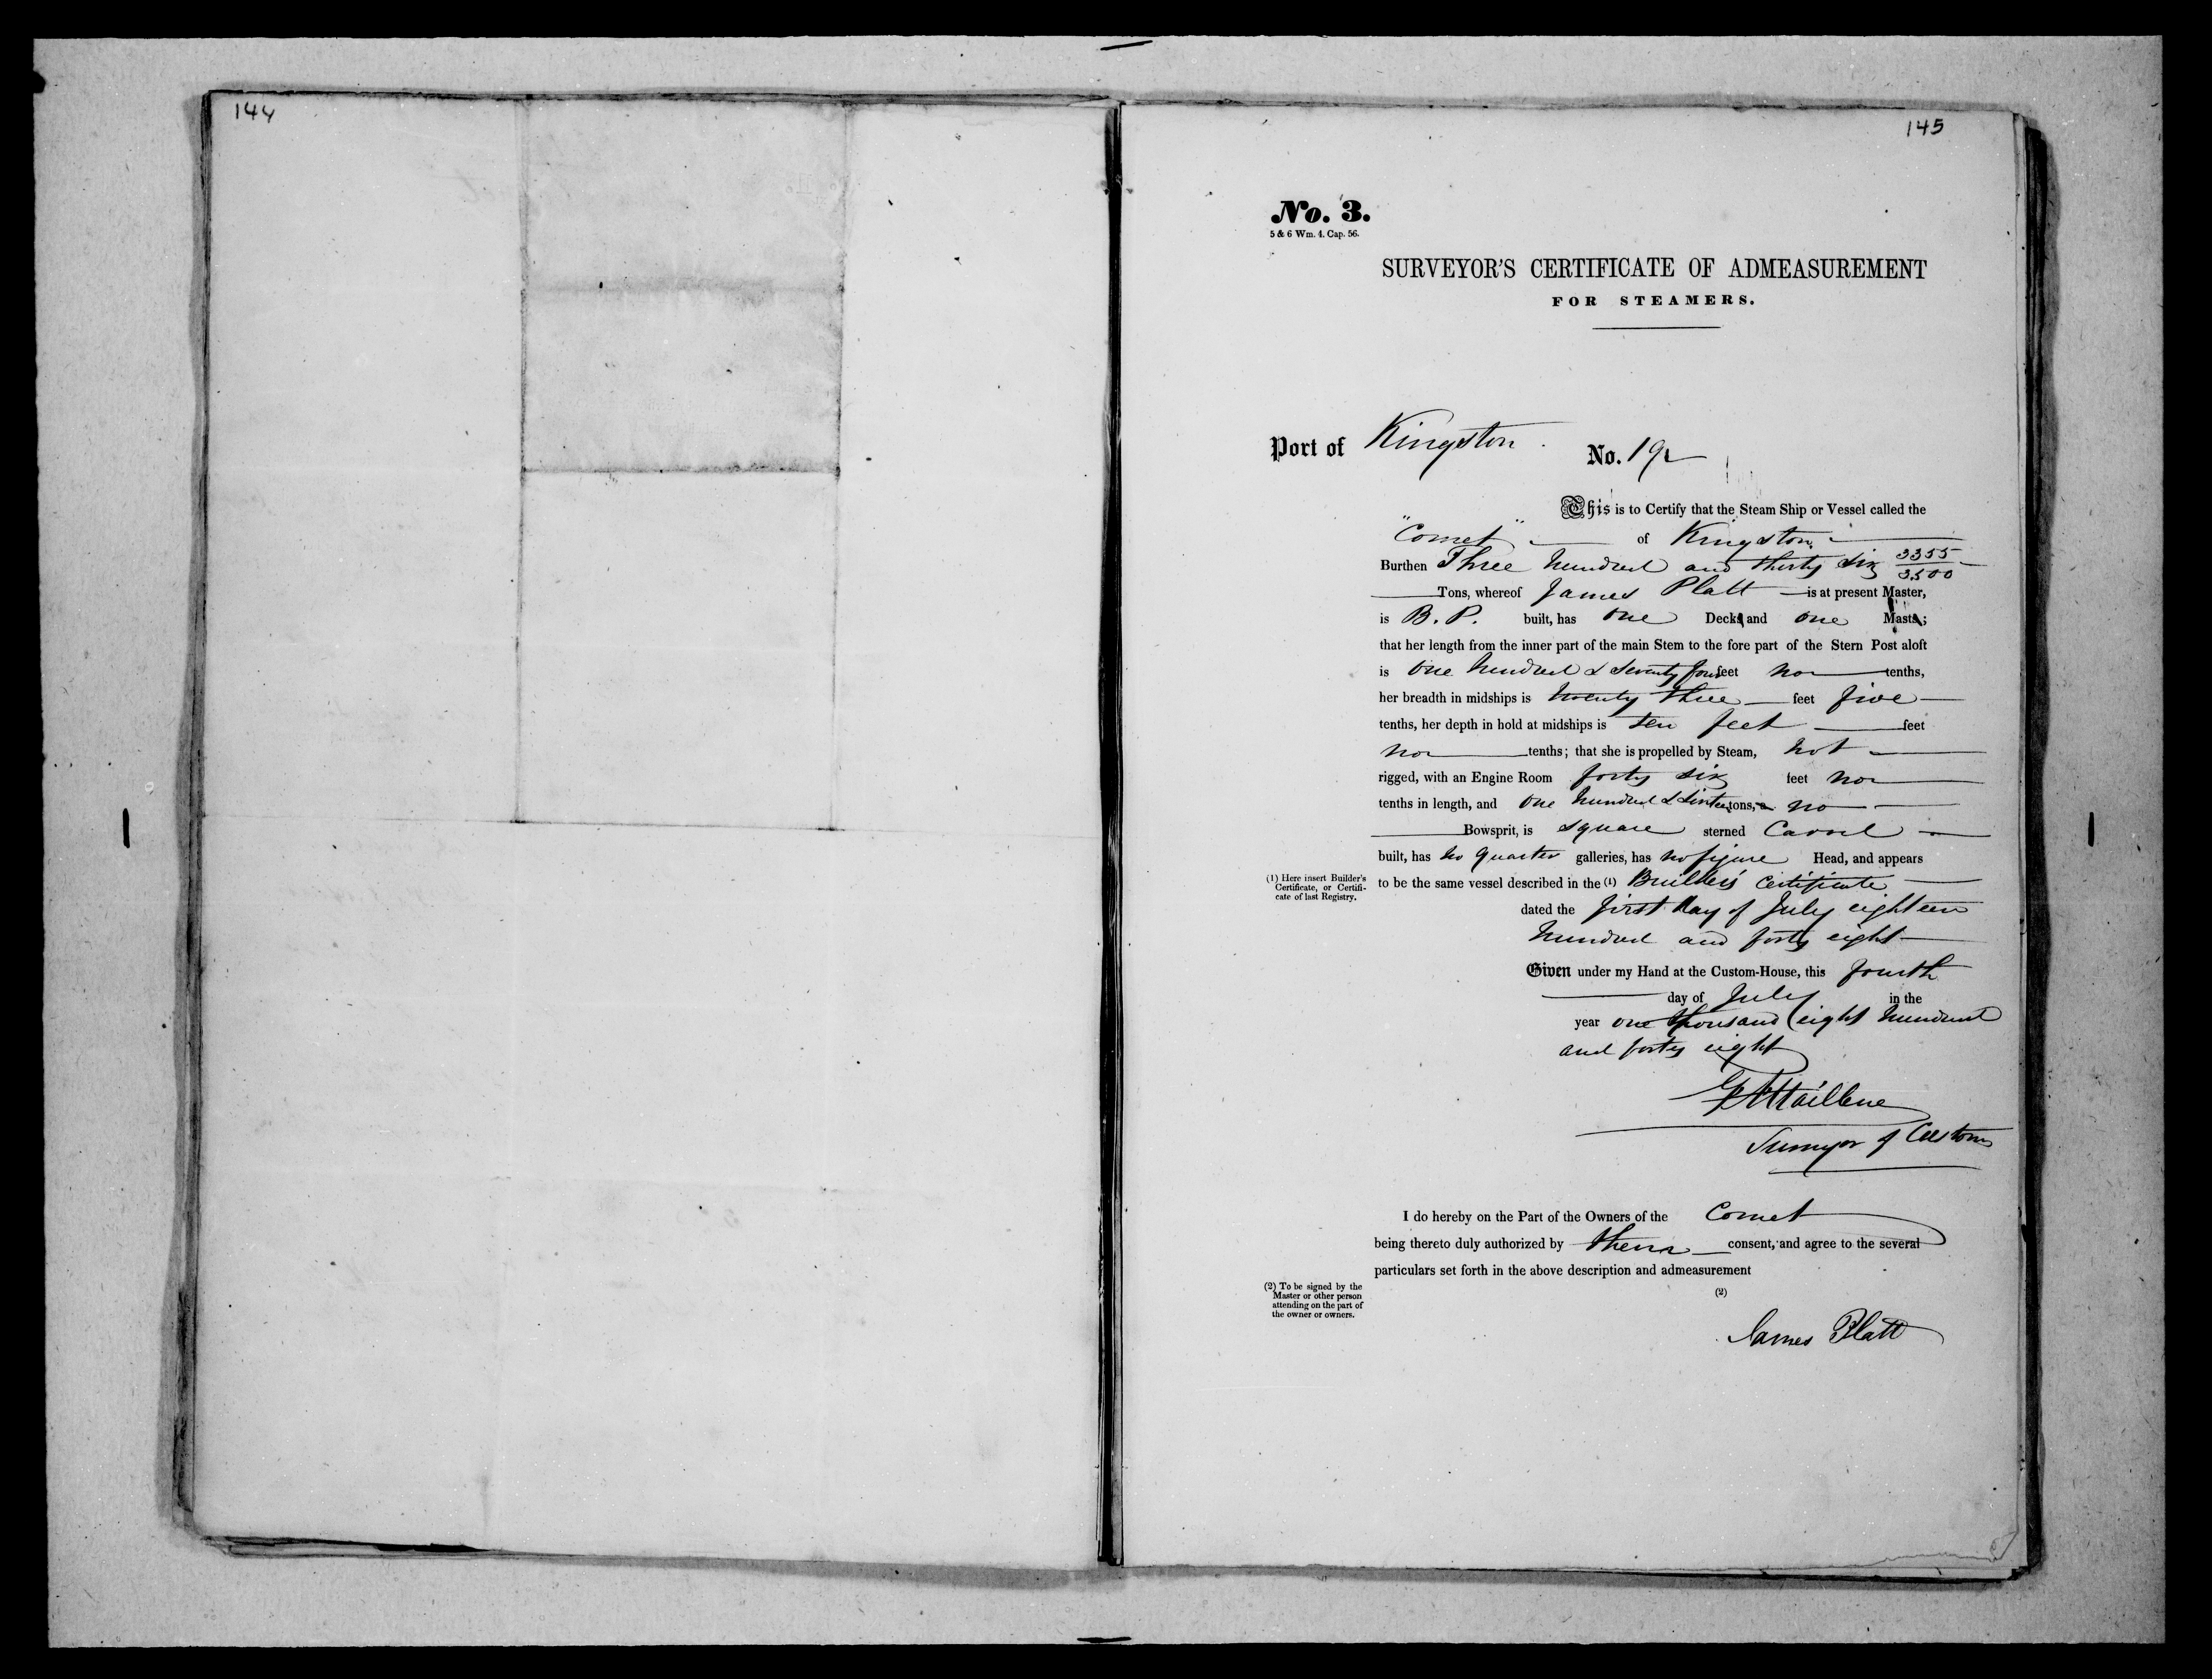 144
145
No. 3.
5 & 6 Wm. 4. Cap. 56.
SURVEYOR'S CERTIFICATE OF ADMEASUREMENT
FOR STEAMERS.
Port of Kingston. No. 192
This is to Certify that the Steam Ship or Vessel called the
"Comet" of Kingston
Burthen Three hundred and thirty six 3355/3500
Tons, whereof James Platt is at present Master,
is B. P. built, has one Deck and one Mast;
that her length from the inner part of the main Stem to the fore part of the Stern Post aloft
is One hundred & Seventy four feet no tenths,
her breadth in midships is twenty three feet five
tenths, her depth in hold at midships is ten feet feet
no tenths; that she is propelled by Steam, not
rigged, with an Engine Room forty six feet no
tenths in length, and One hundred & Sixteen tons, a no
Bowsprit, is square sterned Carvel
built, has no quarter galleries, has no figure Head, and appears
(1) Here insert Builder's
Certificate, or Certifi-
cate of last Registry.
to be the same vessel described in the (1) Builder's Certificate
dated the first day of July eighteen
hundred and forty eight
Given under my Hand at the Custom-House, this fourth
day of July in the
year one thousand eight hundred
and forty eight
Surveyor of Customs
I do hereby on the Part of the Owners of the Comet
being thereto duly authorized by them consent, and agree to the several
particulars set forth in the above description and admeasurement
(2) To be signed by the
Master or other person
attending on the part of
the owner or owners.
(2)
James Platt